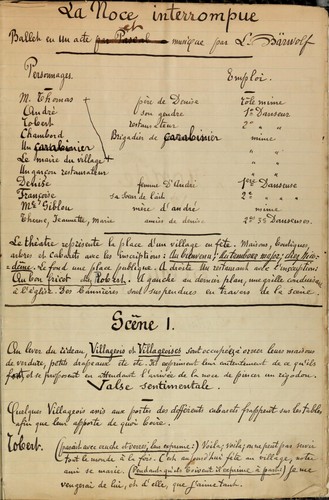 La Noce interrompue
Ballet en un acte par Pascal et musique par L. Bärwolf
Personnages. Emploi.
M. Thomas + père de Denise Rôle mime
André son gendre 1er Danseur
Robert restaurateur 2e "
Chambord Brigadier de carabinier mime
Un carabinier " "
Le maire du village + " "
Un garçon restaurateur " "
Denise femme d'André 1ère Danseuse
Françoise sa sœur de lait 2e "
Mme Giblou mère d'André mime
Therese, Jeannette, Marie amies de denise 2des Danseuses.
Le théâtre représente la place d'un village en fête. Maisons, boutiques,
arbres et cabarets avec les inscriptions: Au bien venu; Au tambour major; chez
Le fond une place publique. A droite Un restaurant avec l'inscription:
Au bon fricot du Robert. A gauche au dernier plan, une grille conduisant
à l'Eglise. Des bannières sont suspendues en travers de la scène.
Scène 1.
Au lever du rideau, Villageois et Villageoises sont occupés à orner leurs maisons
de verdure, petits drapeaux etc etc. Ils expriment leur contentement de ce qu'ils
font et se proposent en attendant l'arrivée de la noce de pincer un rigodon.
Valse sentimentale.
Quelques Villageois assis aux portes des différents cabarets frappent sur les tables
afin que l'on apporte de quoi boire.
Robert. (parait avec cruche et verres, leur exprime:) Voila, voila; on ne peut pas servir
tout le monde à la fois. C'est aujourd'hui fête au village, notre
ami se marie. (Pendant qu'ils boivent il exprime à part:) Je me
vengerai de lui, et d'elle, que j'aime tant.